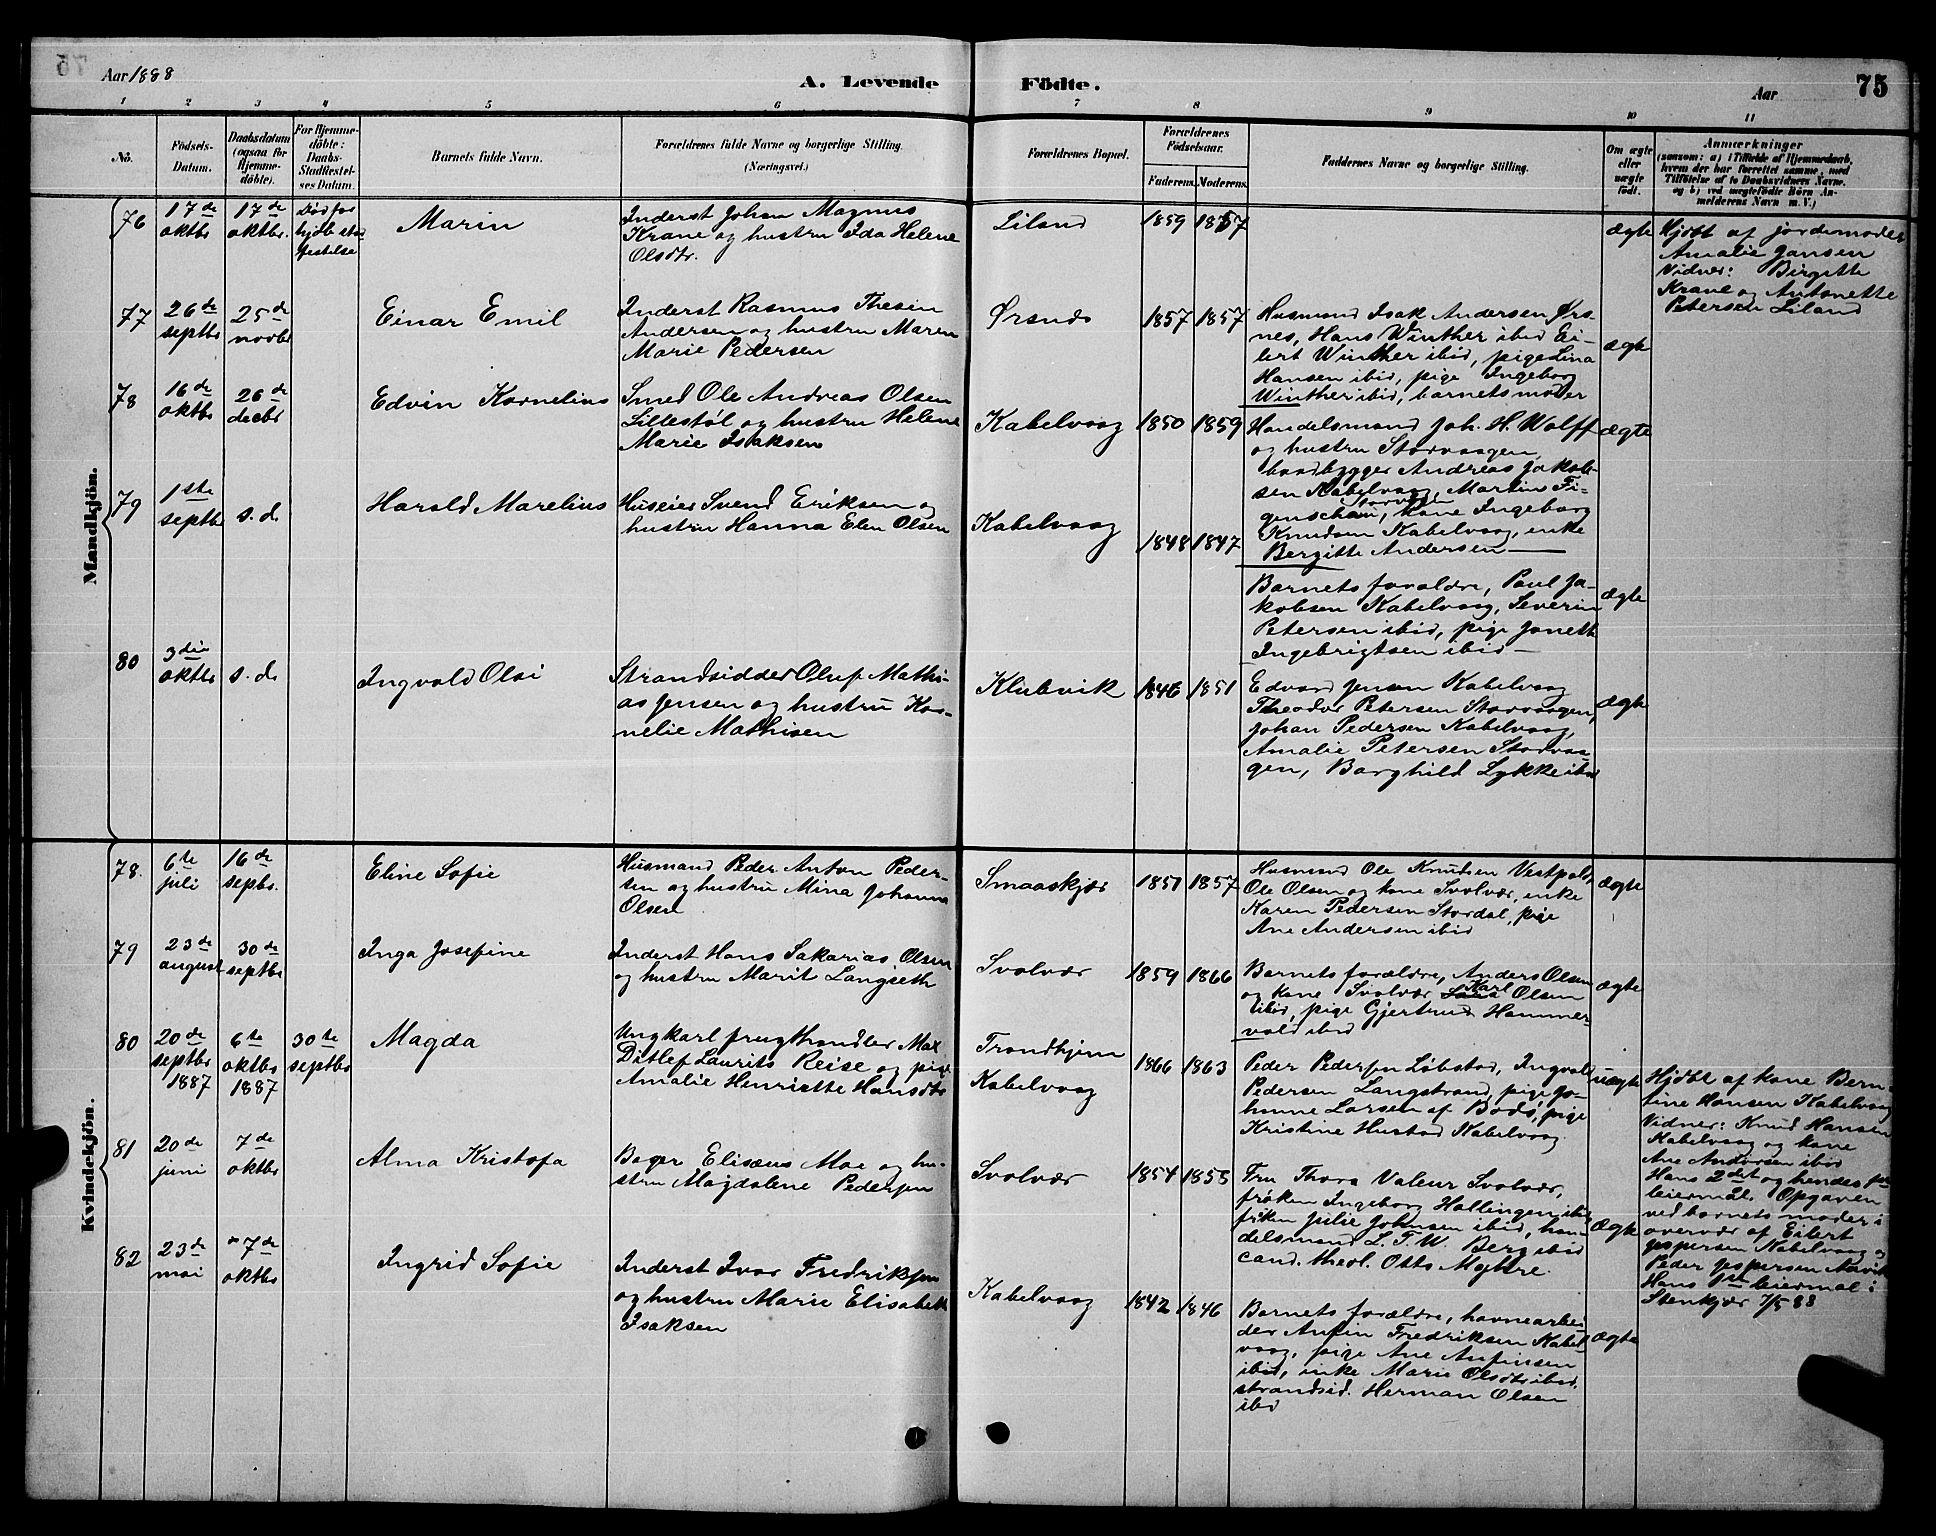 Aar 1888
A. Levende
Födte.
Aar
75
1 2 3 4 5 6 7 8 9 10 11
No.
Födsels-
Datum.
Daabsdatum
(ogsaa for
Hjemme-
döbte).
For Hjemme-
döbte:
Daabs-
Stadfæstel-
ses Datum.
Barnets fulde Navn.
Forældrenes fulde Navne og borgerlige Stilling.
(Næringsvei.)
Forældrenes Bopæl.
Forældrenes
Födselsaar.
Faderens. Moderens.
Faddernes Navne og borgerlige Stilling.
Om ægte
eller
uægte
födt.
Anmærkninger
(saasom: a) i Tilfælde af Hjemmedaab,
hvem der har forrettet samme, med
Tilföielse af to Daabsvidners Navne.
og b) ved uægtefödte Börn An-
melderens Navn m. V.)
Mandkjön.
76
17de
oktbr
17de
oktbr.
Død før
hjdb. stad
festelse
Marin
Inderst Johan Magnus
Krane og hustru Ida Helene
Olsdtr.
Liland
1859 1857
ægte
Hjdbt af jordemoder
Amalie Jansen
Vidner: Birgitte
Krane og Antonette
Petersen Liland
77
26de
septbr
25de
novbr
Einar Emil
Inderst Rasmus Thesen
Andersen og hustru Maren
Marie Pedersen
Ørsnes
1857 1857
Husmand Isak Andersen Ørs-
nes, Hans Winther ibid Ei-
lert Winther ibid, pige Lina
Hansen ibid, pige Ingeborg
Winther ibid, barnets moder
ægte
78
16de
oktbr
26de
decbr
Edvin Kornelius
Smed Ole Andreas Olsen
Lillestøl og hustru Helene
Marie Isaksen
Kabelvaag
1850 1859
Handelsmand Joh. H. Wolff
og hustru Storvaagen,
baadbygger Andreas Jakob-
sen Kabelvaag, Martin Fi-
genschau, Storvågen kone Ingeborg
Knudsen Kabelvaag, enke
Bergitte Andersen —
ægte
79
1ste
septbr
s.d.
Harald Marelius
Huseier Svend Eriksen og
hustru Hanna Elen Olsen
Kabelvaag
1848 1847
Barnets forældre, Paul Ja-
kobsen Kabelvaag, Severin
Petersen ibid, pige Janett
Ingebrigtsen ibid —
ægte
80
3die
oktbr
s.d.
Ingvald Olai
Strandsidder Oluf Mathi-
as Jensen og hustru Kor-
nelie Mathisen
Klubvik
1846 1851
Edvard Jensen Kabelvaag
Theodor Petersen Storvaagen,
Johan Pedersen Kabelvaag,
Amalie Petersen Storvaa-
gen, Borghild Lykke ibid
ægte
Kvindekjön.
78.
6te
juli
16de
septbr.
Eline Sofie
Husmand Peder Anton Peder-
sen og hustru Mina Johanna
Olsen
Smaaskjær
1851 1857
Husmand Ole Knudsen Vestpold,
Ole Olsen og kone Svolvær, enke
Karen Pedersen Stordal, pige
Ane Andersen ibid
ægte
79
23de
august
30de
septbr
Inga Josefine
Inderst Hans Sakarias Olsen
og hustru Marit Langseth
Svolvær
1859 1866
Barnets forældre, Anders Olsen
og kone Svolvær Karl Olsen
ibid, pige Gjertrud Hammer-
vold ibid
ægte
80
20de
septbr
1887
6te
oktbr
1887
30te
septbr
Magda
Ungkarl frugthandler Max
Ditlef Laurits Reise og pige
Amalie Henriette Hansdtr
Trondhjem
Kabelvaag
1866 1863
Peder Pedersen Løbstad, Ingvald
Pedersen Langstrand, pige Jo-
hanne Larsen af Bodø, pige
Kristine Hustad Kabelvaag.
uægte
Hjdbt af kone Bern-
tine Hansen Kabelvaag
Vidner: Knud Hansen
Kabelvaag og kone
Ane Andersen ibid
Hans 2det og hendes 1ste
leiermål. Opgaven
ved barnets moder i
overvær af Eilert
Jespersen Kabelvaag og
Peder Jespersen
Hans 1ste leiermal i
Stenkjær 7/5 88
81
20de
juni
7de
oktbr
Alma Kristofa
Bager Elisæus Moe og hu-
stru Magdalene Pedersen
Svolvær
1854 1855
Fru Thora Valeur Svolvær,
frøken Ingeborg Hallingen ibid,
frøken Julie Johnsen ibid, han-
delsmand L. T. W. Berg ibid
cand. theol. Otto Myhre.
ægte
82
23de
mai
7de
oktbr
Ingrid Sofie
Inderst Ivar Fredriksen
og hustru Marie Elisabeth
Isaksen
Kabelvaag
1842 1846
Barnets forældre, havnearbei-
der Anfin Fredriksen Kabel-
vaag, pige Ane Anfinsen
ibid, enke Marie Olsdtr ibid.
strandsid. Herman Olsen
ibid
ægte